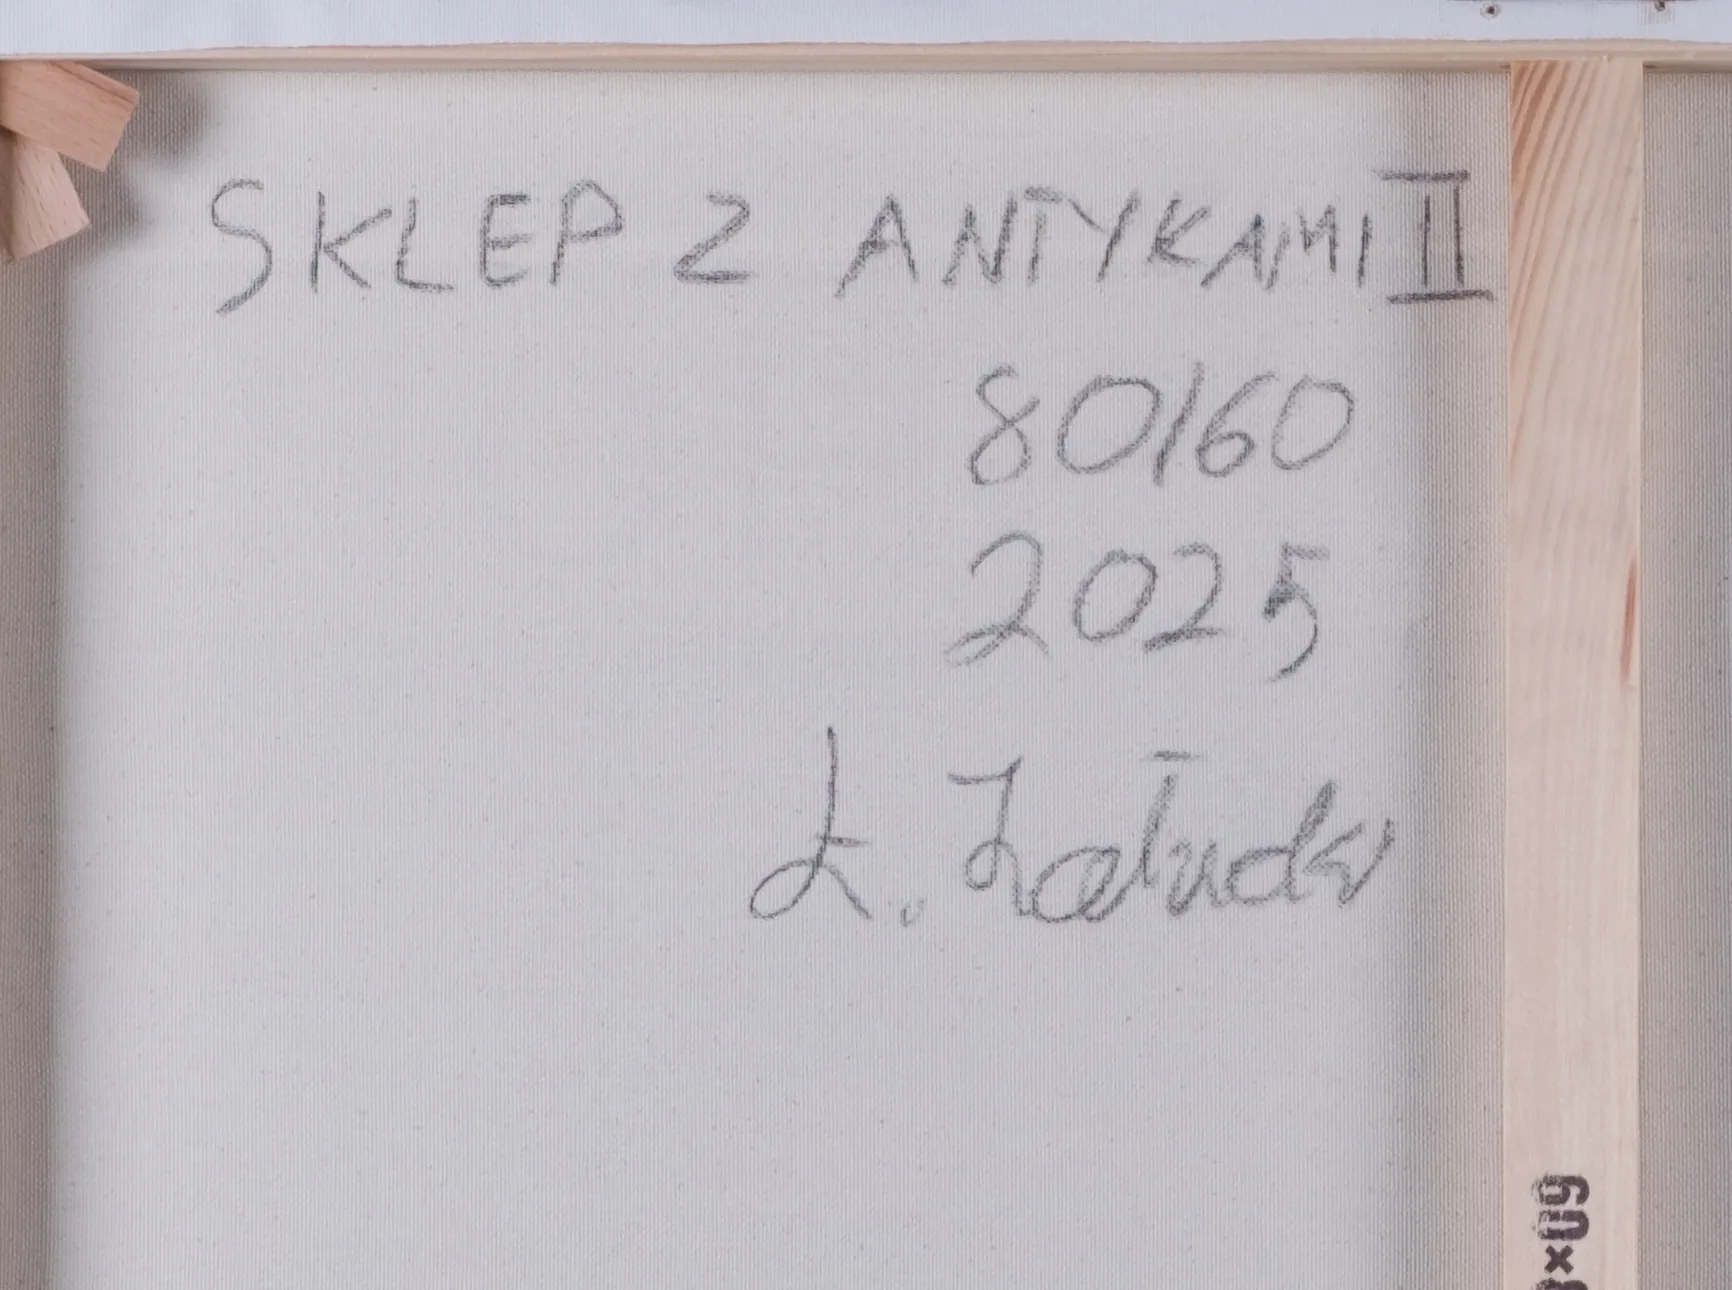 SKLEP Z ANTYKAMI II
80/60
2025
Ł. Załuda